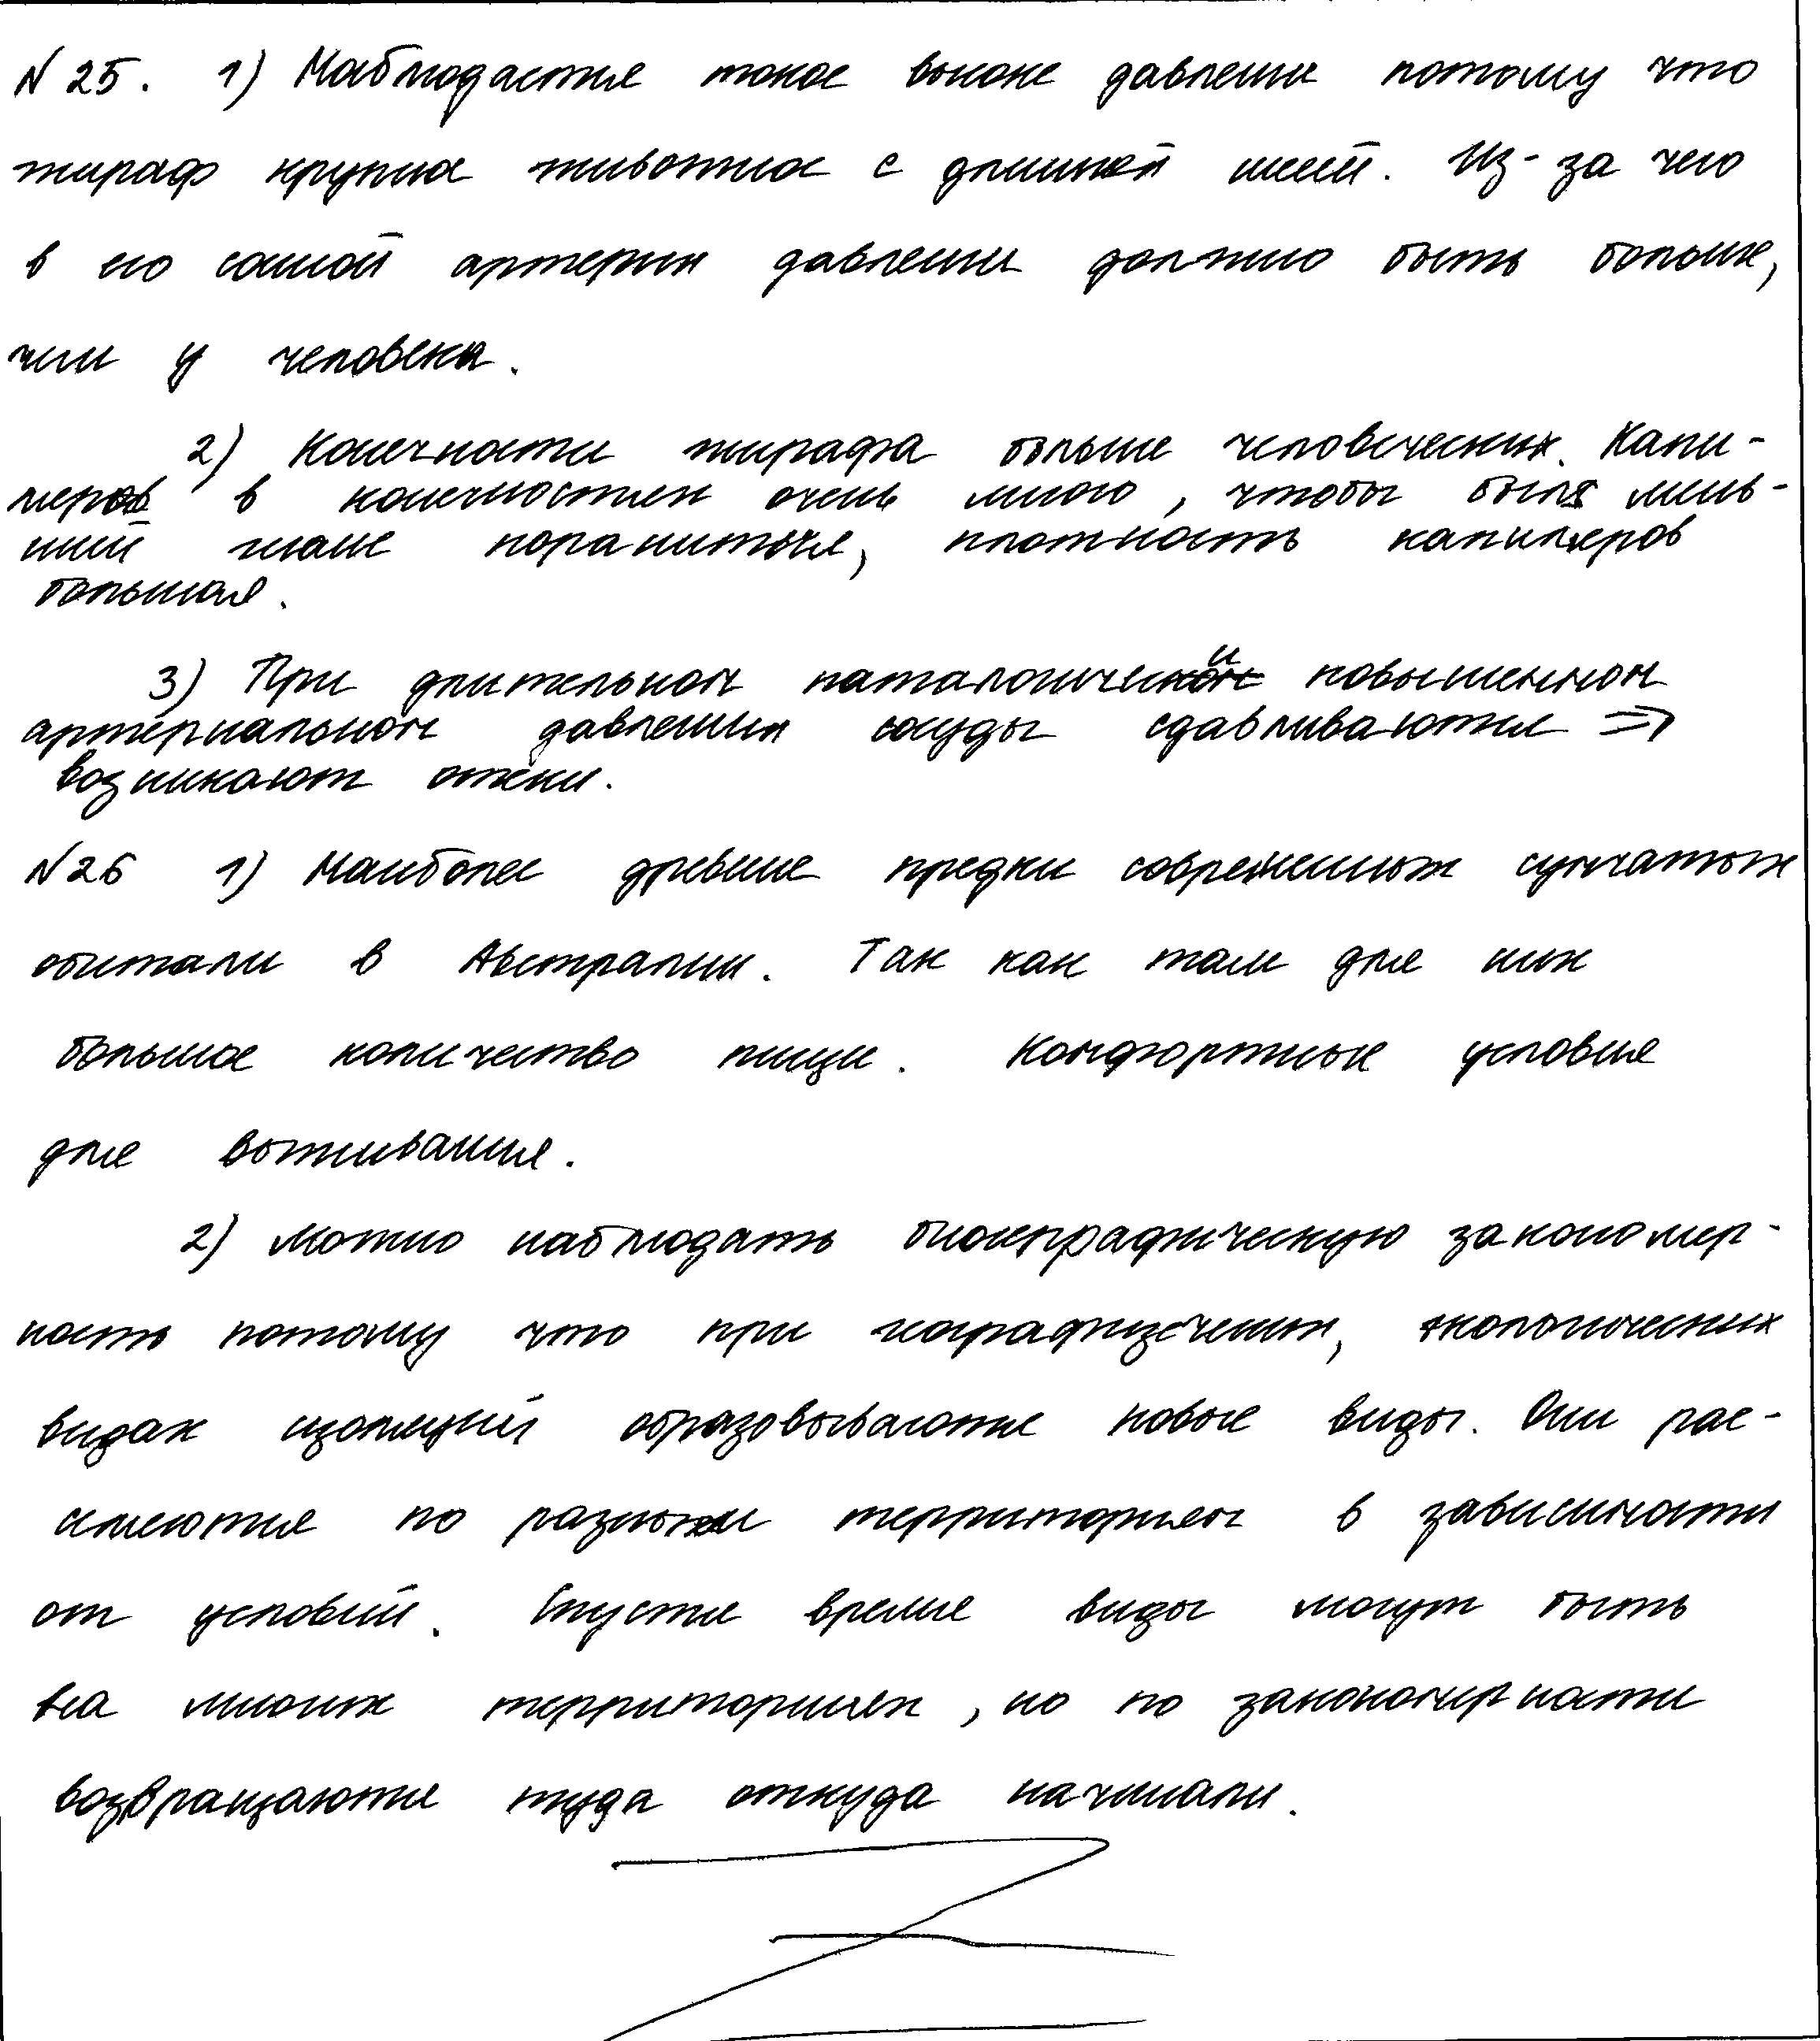 N 25. 1) Наблюдается такое высоке давлени потому что
жираф крупное животное с длинной шеей. Из-за чего
в его сонной артерии давлени должно быть больше,
чем у человека.
2) Конечности жирафа больше человеческих. Капи-
леров в конечностях очень много, чтобы был мень-
ший шанс пораниться, плотность капиляров
большая.
3) При длительном паталогически повышенном
артериальном давлении сосуды сдавливаются =>
возникают отёки.
N26 1) Наиболее древние предки современных сумчатых
обитали в Австралии. Так как там для них
большое количество пищи. Комфортные условия
для выживания.
2) Можно наблюдать биогеграфическую закономер-
ность потому что при экологических
видах изоляций образовываются новые виды. Они рас-
селяются по разным территориям в зависимости
от условий. Спустя время виды могут быть
на многих территориях, но по закономерности
возвращаются туда откуда начинали.